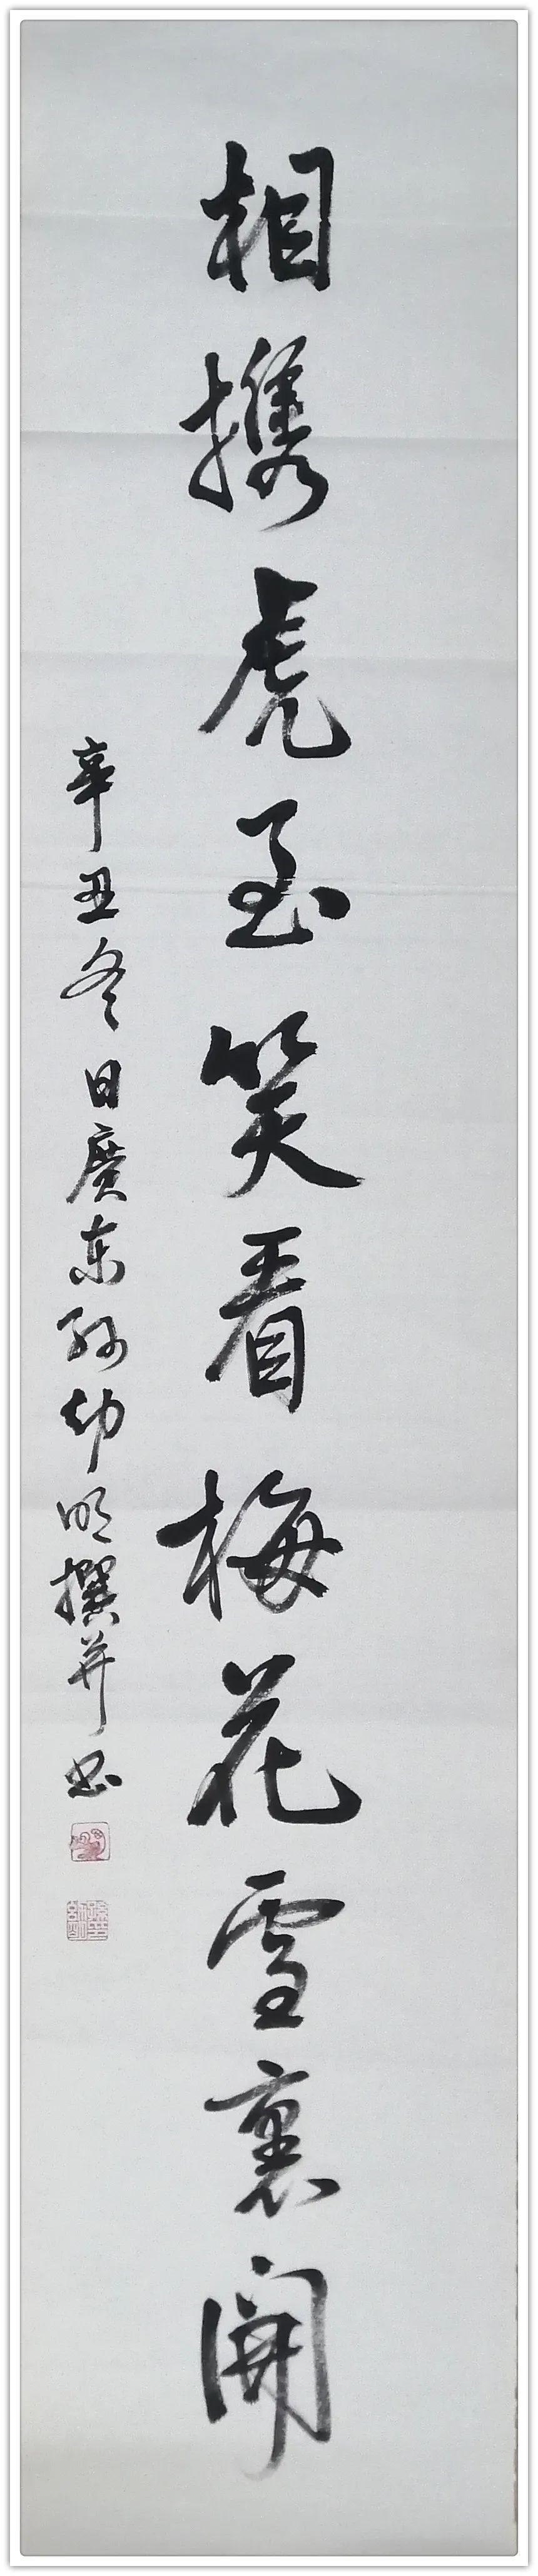 相攜虎至笑看梅花雪裏開
辛丑冬日廣东孙幼明撰并书